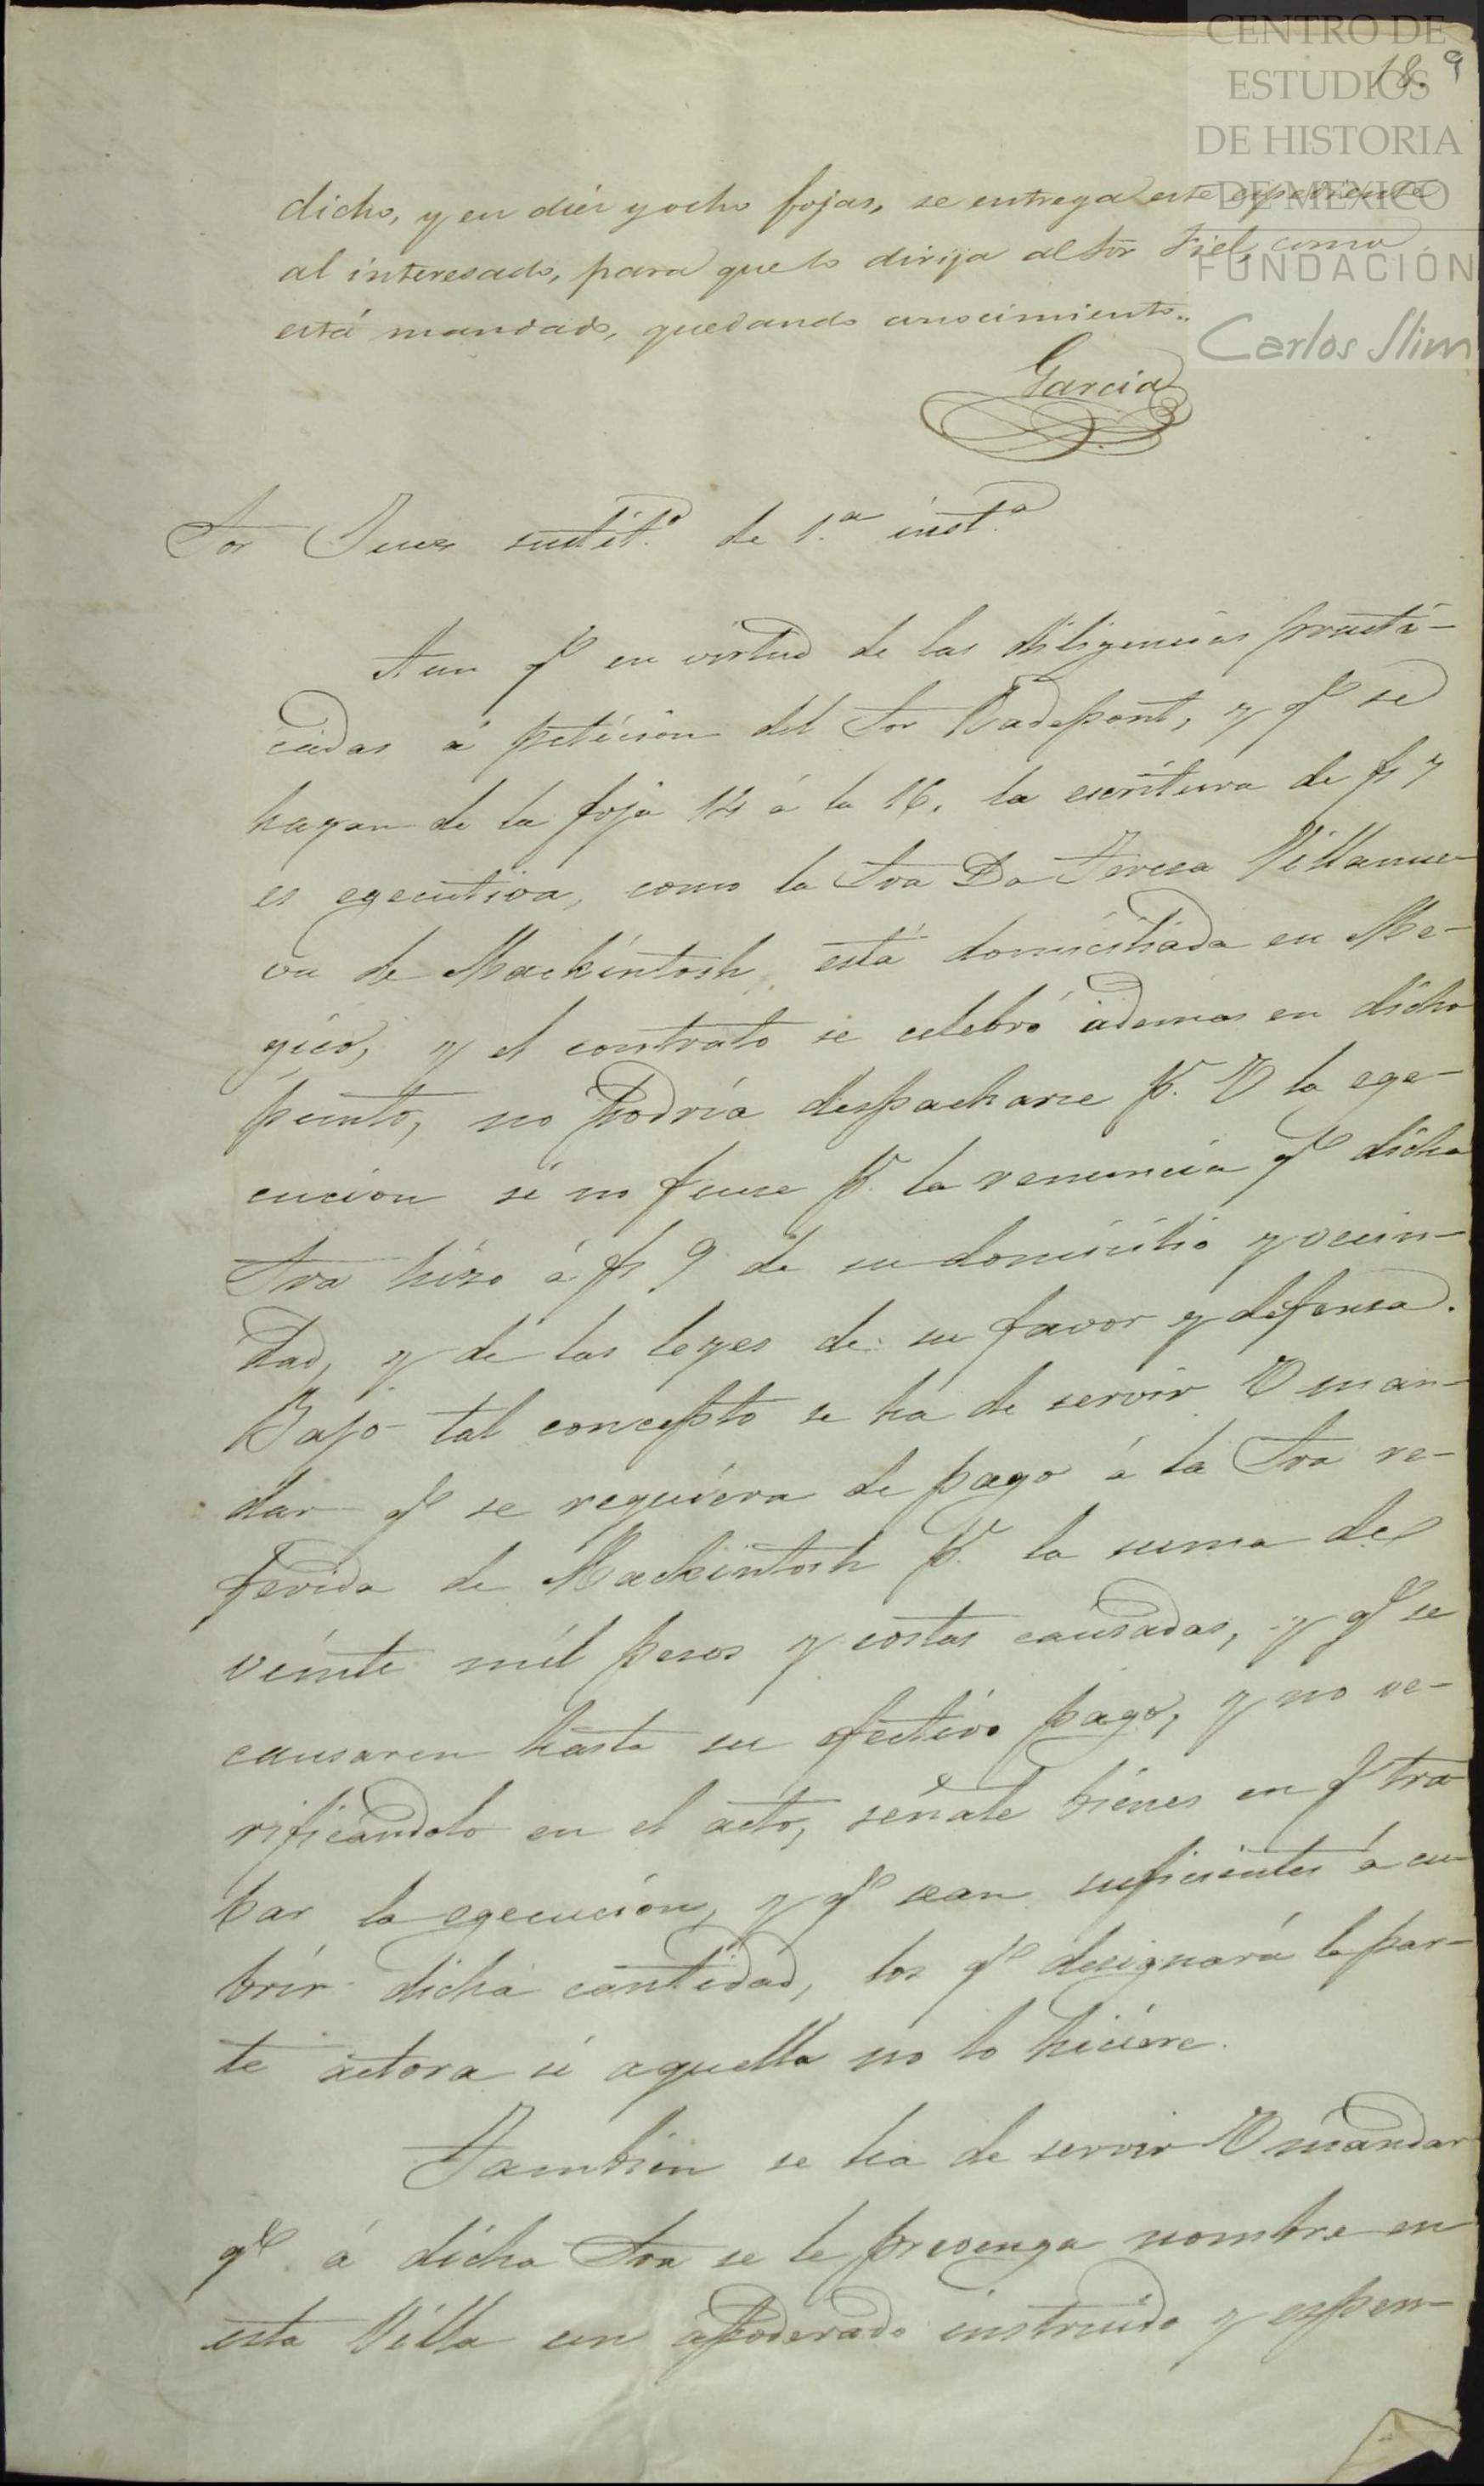 CENTRO DE
ESTUDIOS
DE HISTORIA
DE MÉXICO
FUNDACIÓN
Carlos Slim
18. 9
dicho, y en diez y ocho fojas, se entrega este espediente
al interesado, para que lo dirija al Sor Fiel, como
está mandado, quedando conocimiento..
Garcia
Sor Juez sustit.º de 1.ª inst.ª
Aun qe en virtud de las diligencias practi-
cadas á peticion del Sor Radepont, y qe se
hayan de la foja 14 á la 16, la escritura de fs 7
es egecutiva, como la Sra Da Teresa Villanue-
va de Mackintosh, está domiciliada en Me-
gico, y el contrato se celebró ademas en dicho
punto, no podria despacharse pr. V la ege-
cucion si no fuese pr. la renuncia qe dicha
Sra hizo á fs 9 de su domicilio y vecin-
dad, y de las leyes de su favor y defensa.
Bajo tal concepto se ha de servir V man-
dar qe se requiera de pago á la Sra re-
ferida de Mackintosh pr. la suma de
veinte mil pesos y costas causadas, y qe se
causaren hasta su efectivo pago, y no ve-
rificandolo en el acto, señale bienes en qe tra-
bar la egecucion, y qe sean suficientes á cu-
brir dicha cantidad, los qe designará la par-
te actora si aquella no lo hiciere.
Tambien se ha de servir V mandar
qe á dicha Sra se le prevenga nombre en
esta Villa un apoderado instruido y espen-